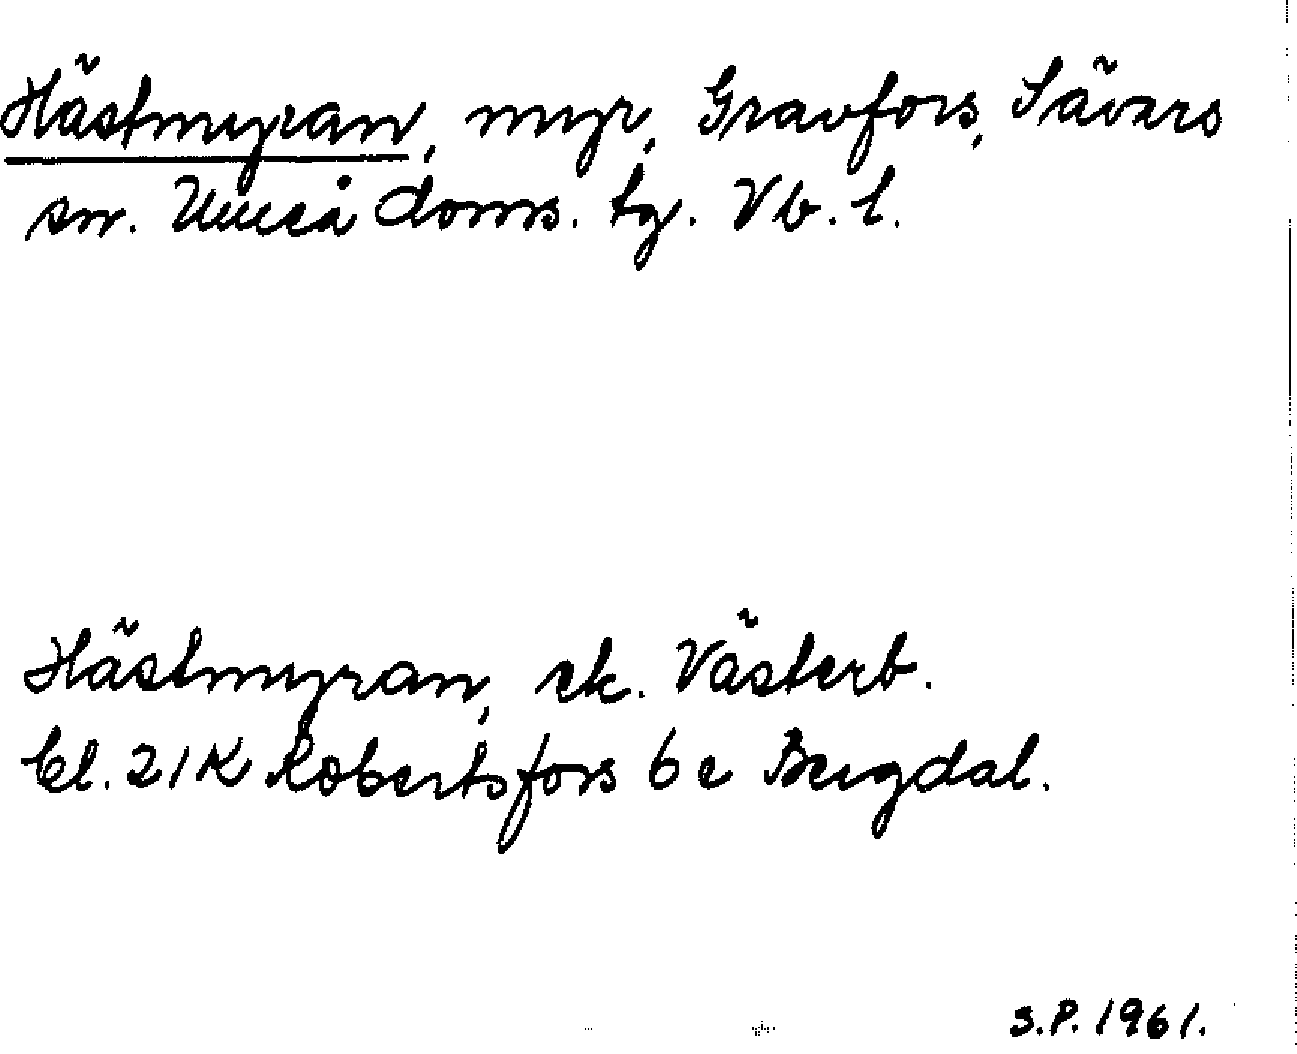 Hästmyran, myr, Gravfors, Sävars
sn. Umeå doms. tg. Vb. l.
Hästmyran, ek. Västerb.
bl. 21K Robertsfors 6e Bergdal.
S.P. 1961.